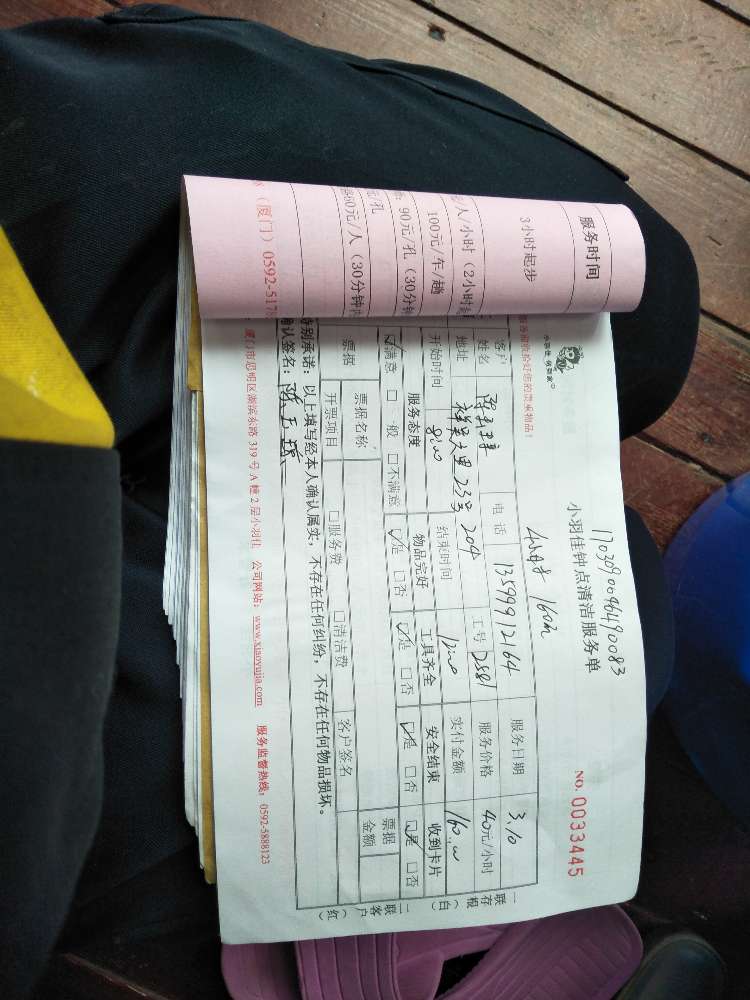 服务时间
3小时起步
/人/小时（2小时起
100元/车/趟
90元/孔（30分钟
元/孔
60元/人（30分钟内
（厦门）0592-5178
小羽佳 家政
1703090046490083
小羽佳钟点清洁服务单
NO. 0033445
服务前收拾好您的贵重物品！
4小时 160元
客户姓名
电话
13599912164
服务日期
3.10
地址
祥吴大里 23号 204
工号
D581
服务价格
40元/小时
开始时间
8:00
结束时间
12:00
实付金额
160.00
服务态度
物品完好
工具齐全
安全结束
收到卡片
☑满意 □一般 □不满意
☑是 □否
☑是 □否
☑是 □否
☑是 □否
票据
票据名称
开票项目
□服务费
□清洁费
客户签名
票据金额
特别承诺：以上填写经本人确认属实，不存在任何纠纷，不存在任何物品损坏。
确认签名：
厦门市思明区湖滨东路 319号 A 幢 2 层小羽佳 公司网站：www.xiaoyujia.com 服务监督热线：0592-5888123
一联存根（白）
二联客户（红）